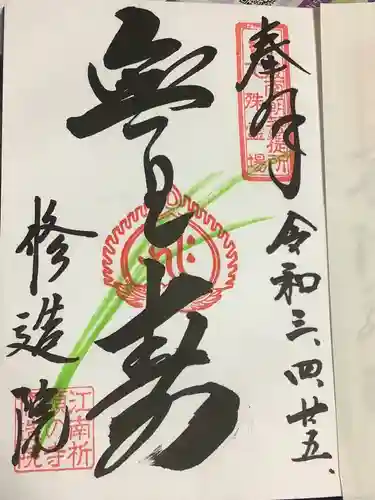 奉拝
令和三、四、廿五、
無量寿
修造院
朝菩提所
殊霊場
江南祈